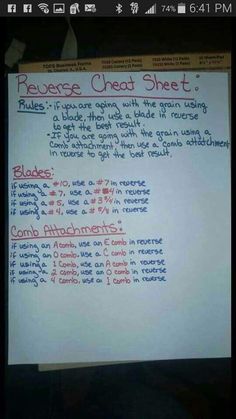 74% 6:41 PM
TOPS Business Forms
Reverse Cheat Sheet:
Rules:- if you are going with the grain using
a blade, then use a blade in reverse
to get the best result.
-If you are going with the grain using a
comb attachment, then use a comb attatchment
in reverse to get the best result.
Blades:
if using a #10, use a #7 in reverse
if using a #7, use a #4 in reverse
if using a #5, use a #3 3/4 in reverse
if using a #4, use a # 5/8 in reverse
Comb Attachments:
if using an A comb, use an E comb in reverse
if using an O comb, use a C comb in reverse
if using a 1 comb, use an A comb in reverse
if using a 2 comb, use an O comb in reverse
if using a 4 comb, use an 1 comb in reverse